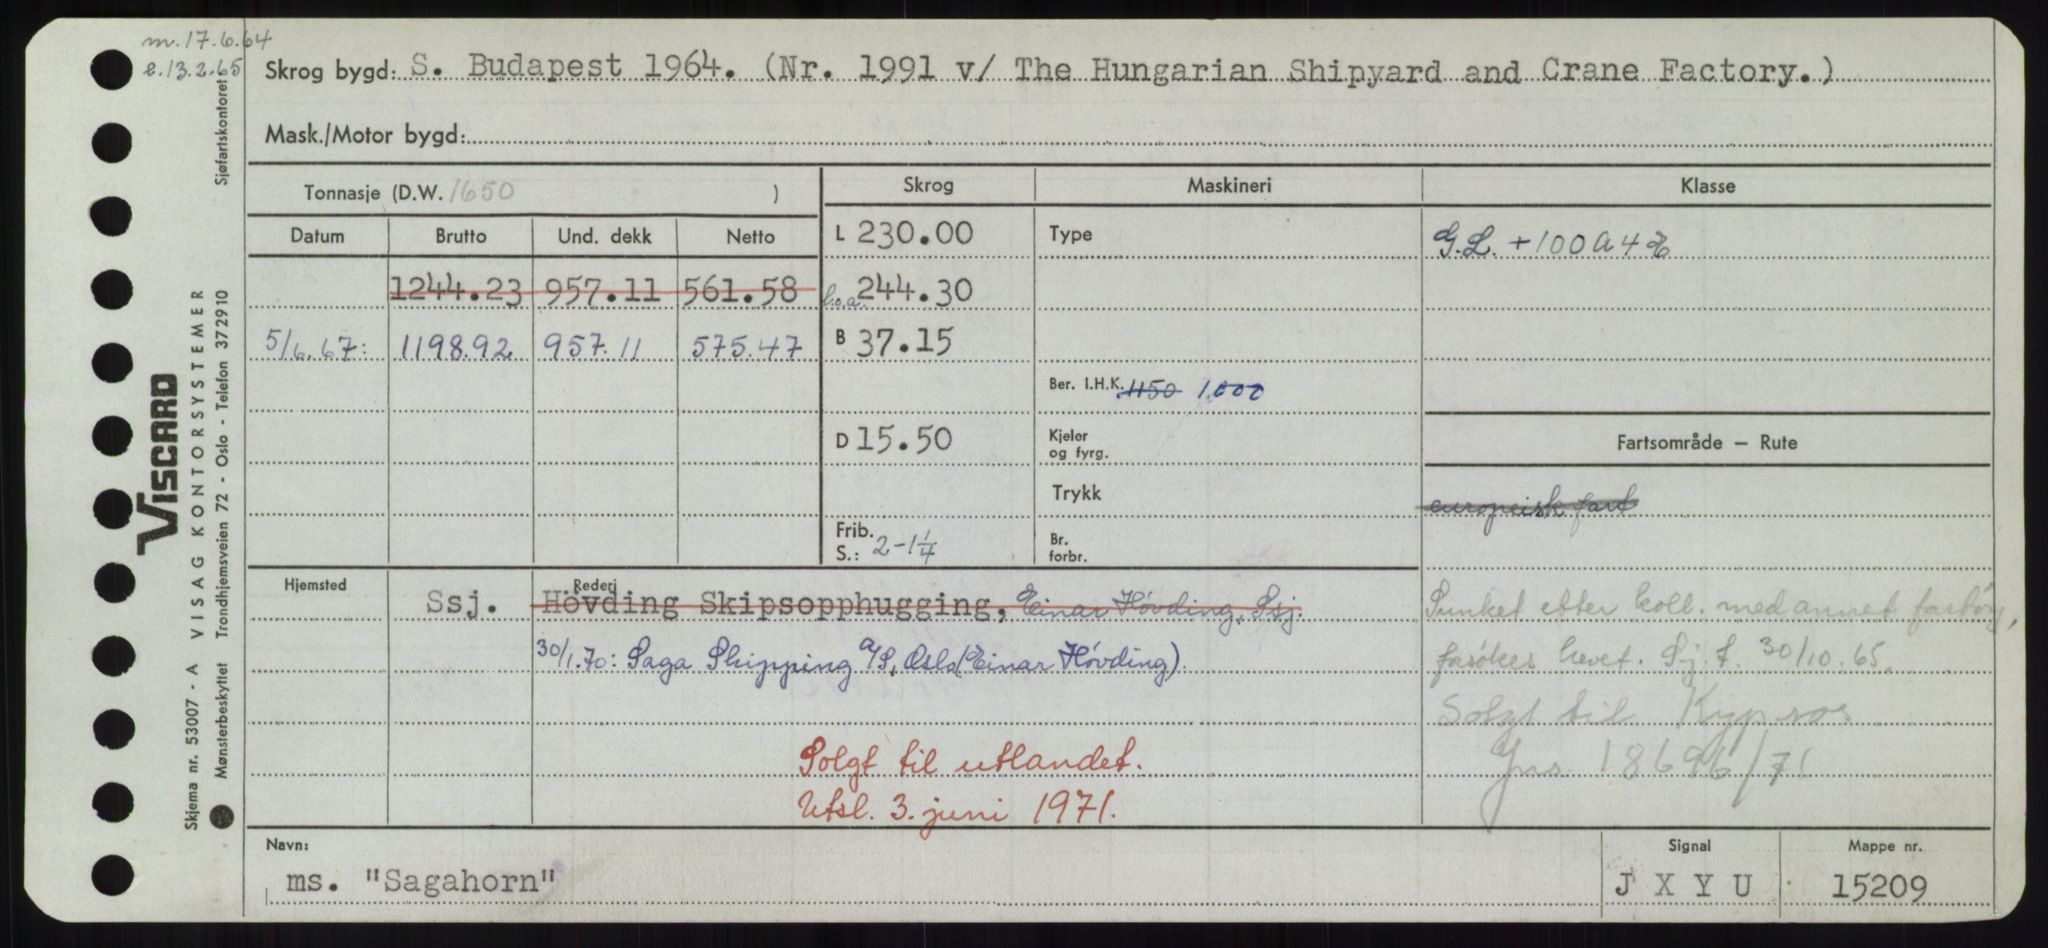 m. 17.6.64
e. 13.2.65
Skrog bygd: S. Budapest 1964. (Nr. 1991 v/ The Hungarian Shipyard and Crane Factory.)
Mask./Motor bygd:
Tonnasje (D.W. 1650 )
Datum Brutto Und. dekk Netto
1244.23 957.11 561.58
5/6.67: 1198.92 957.11 575.47
Skrog
L 230.00
l.o.a. 244.30
B 37.15
D 15.50
Frib.
S.: 2-1 1/4
Maskineri
Type
Ber. I.H.K. 1150 1000
Kjeler
og fyrg.
Trykk
Br.
forbr.
Klasse
G.L. +100A4
Fartsområde — Rute
europeisk fart
Sunket etter koll. med annet fartöy,
fasökes hevet. Sj. f. 30/10.65.
Solgt til Kypros
Jnr. 18696/71
Hjemsted Rederi
Ssj. Hövding Skipsopphugging, Einar Hövding, Ssj.
30/1.70: Saga Shipping A/S, Oslo (Einar Hövding).
Solgt til utlandet.
Utsl. 3. juni 1971.
Navn:
ms. "Sagahorn"
Signal
J X Y U
Mappe nr.
15209
VISCARD
Skjema nr. 53007 - A VISAG KONTORSYSTEMER
Mønsterbeskyttet Trondhjemsveien 72 - Oslo - Telefon 372910 Sjøfartskontoret